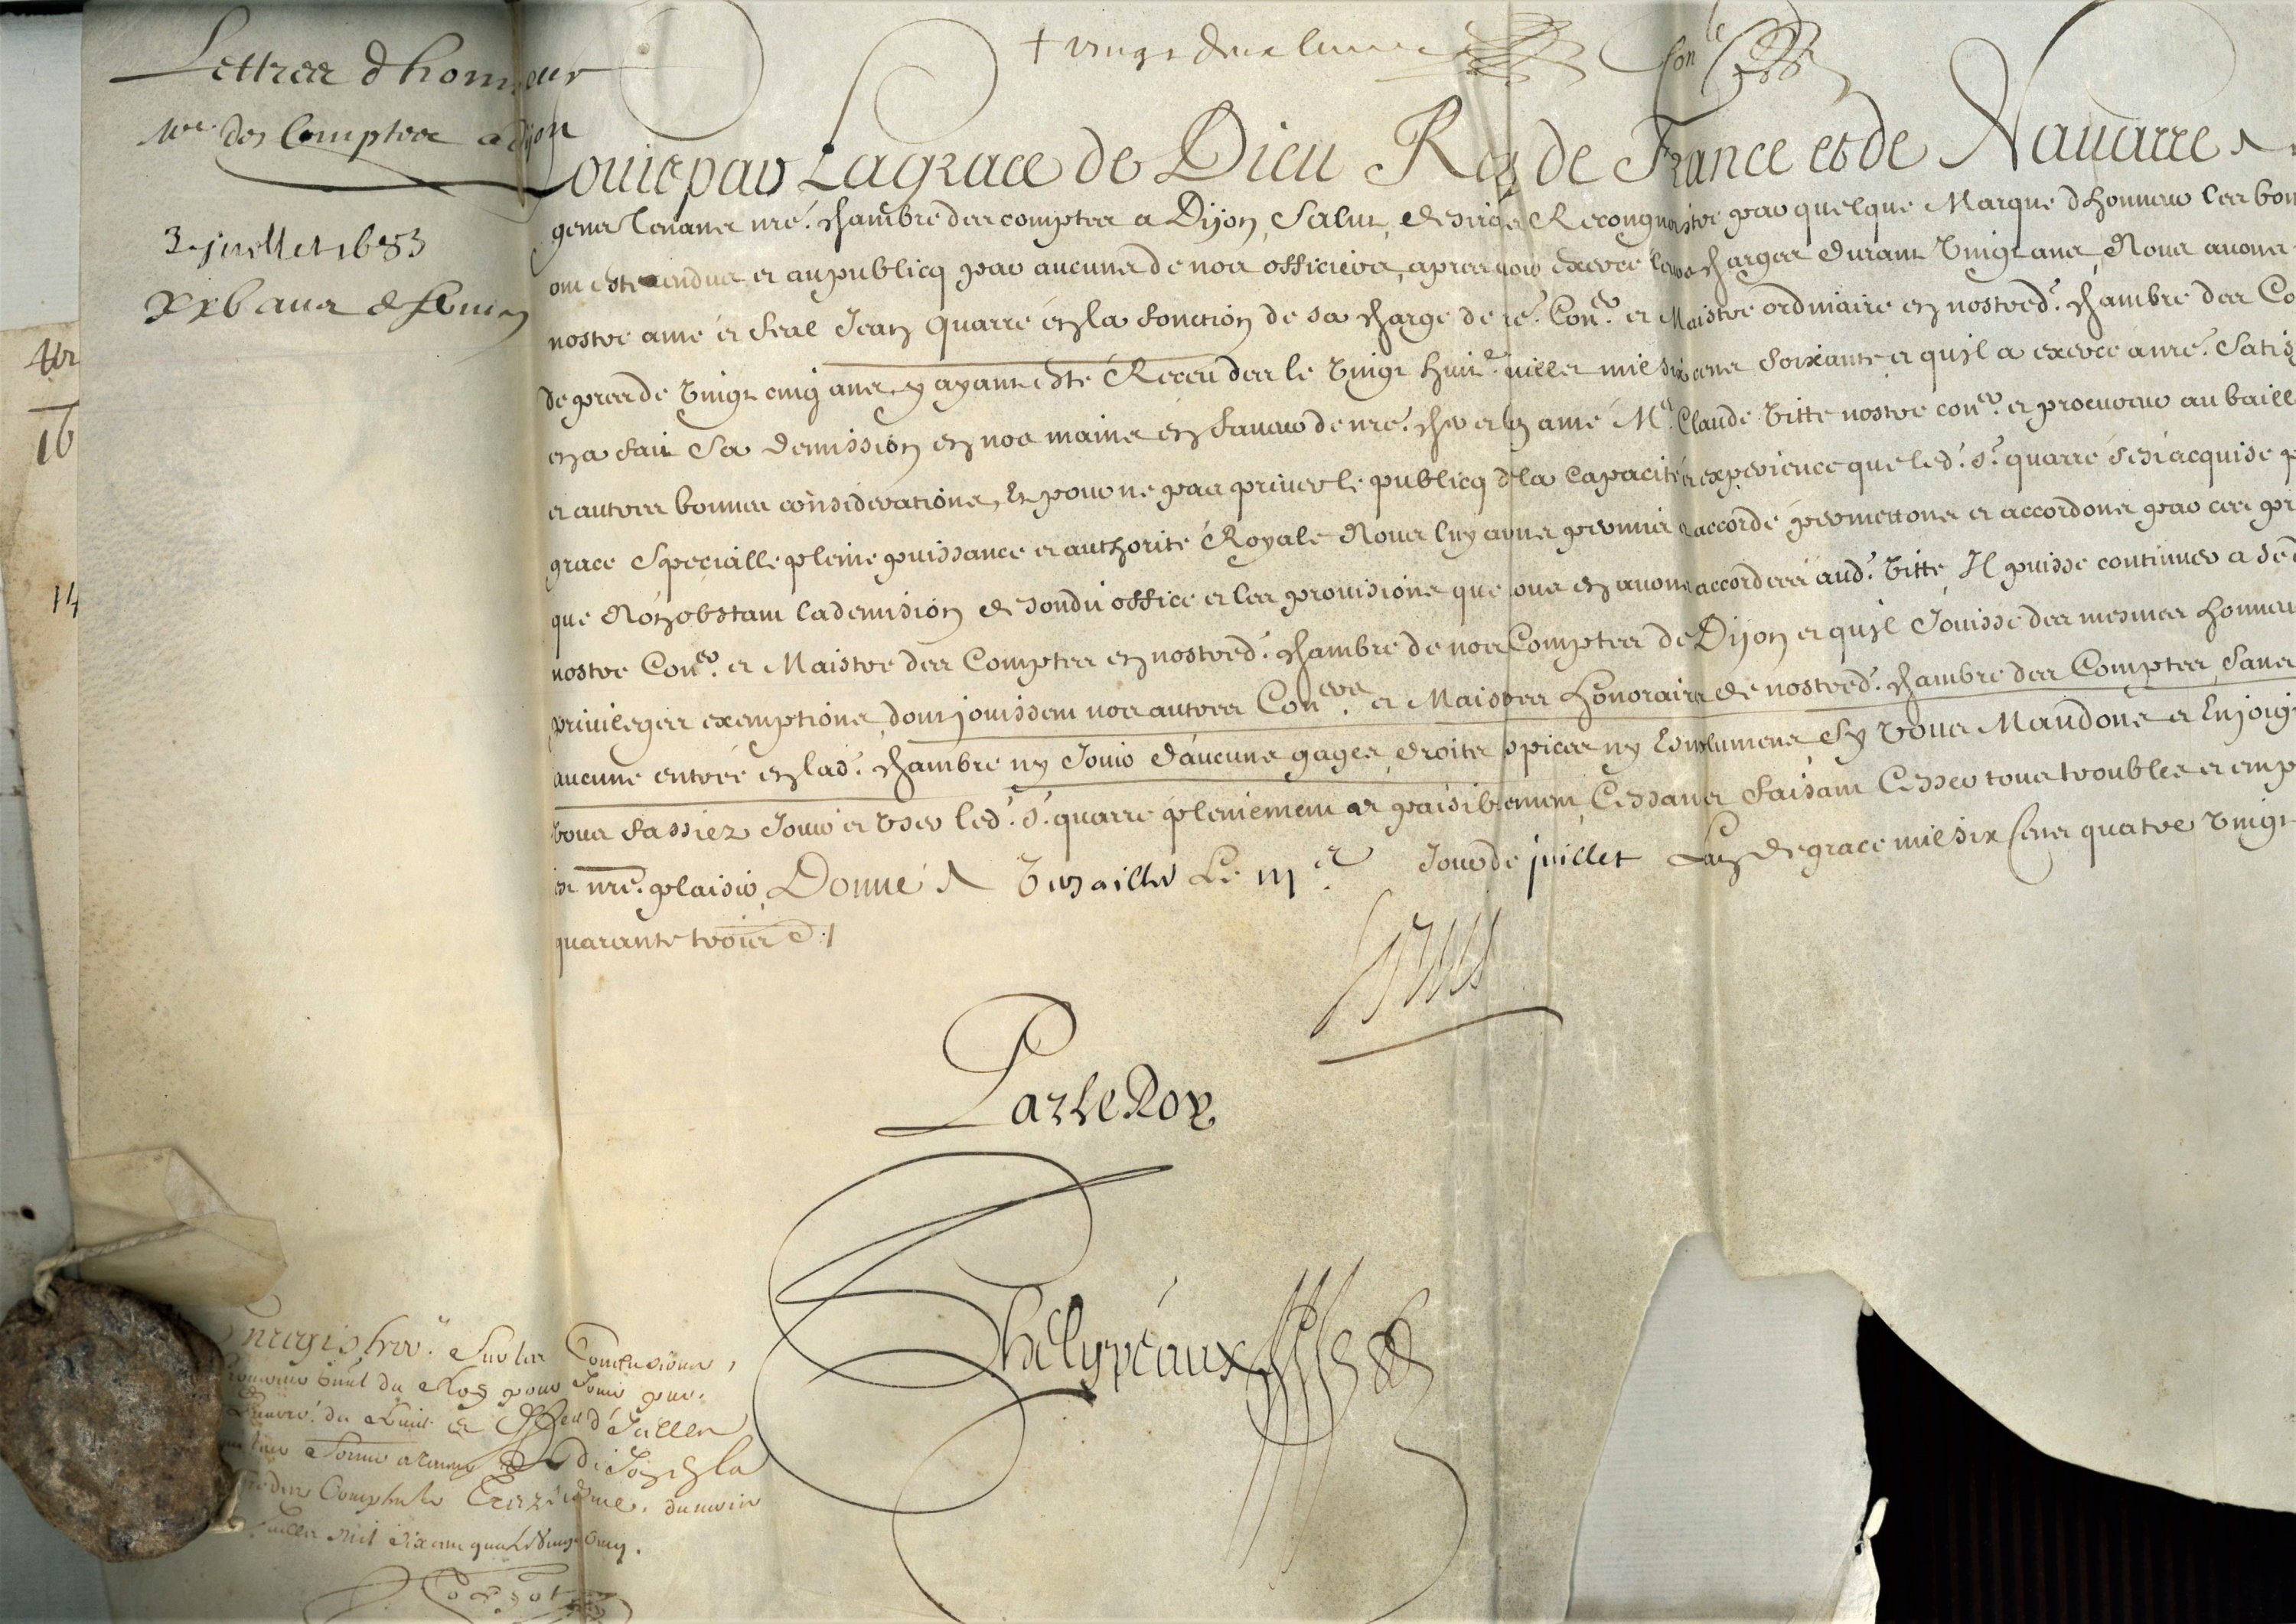 Lettres d'honneur
Mre des Comptes a Dijon
3 juillet 1685
xxb ans de
14
16
+ vingt deux
Louis par La grace de Dieu Roy de France et de Nauarre A
gens tenans nre. chambre des comptes a Dijon, Salut, desirans Recongnoistre par quelque Marque dhonneur les bons
ont esté rendus et au publicq par aucuns de nos officiers, apres auoir exercé leurs charges durant vingt ans, Nous auons
nostre amé et feal Jean Quarré en la fonction de sa charge de nre. Coner. et Maistre ordinaire en nostred. chambre des Co
de pres de vingt cinq ans, y ayant esté Receu des le vingt huite. juillet mil six cens soixante, et quil a exercé a nre. Satis
en a fait Sa demission en nos mains en faueur de nre. cher et bn amé Me. Claude Vitte nostre coner. et procureur au baill
et autres bonnes considerations, Et pour ne pas priuer le publicq de la capacité et experience que led. Sr. quarré sest acquise p
grace Specialle pleine puissance et authorité Royale Nous luy auons permis et accordé permettons et accordons par ces pr
que Nonobstant la demission de sondit office et les provisions que nous en auons accordées aud. Vitte, Il puisse continuer a se d
nostre Coner. et Maistre des Comptes en nostred. chambre de nos Comptes de Dijon et quil Jouisse des mesmes honneu
priuileges exemptions, dont jouissent nos autres Coners. et Maistres Honoraires de nostred. chambre des Comptes, Sans
aucune entrée en lad. chambre ny Jouir d'aucuns gages, droits, spices ny Emolumens Sy vous Mandons et Enjoign
vous fassiez Jouir et vser led. Sr. quarré plainement et paisiblement, Cessans et faisant Cesser tous troubles et emp
est nre. plaisir, Donné A Versailles Le iije. Jour de juillet Lan de grace mil six Cens quatre vingt
quarante trois ./.
Louis
Par Le Roy
Phelypeaux
Enregistré. Sur les Conclusions,
du Roy pour Jouir par.
des Comptes le Treziesme. du mois
Juillet mil six cens quatre vingt cinq.